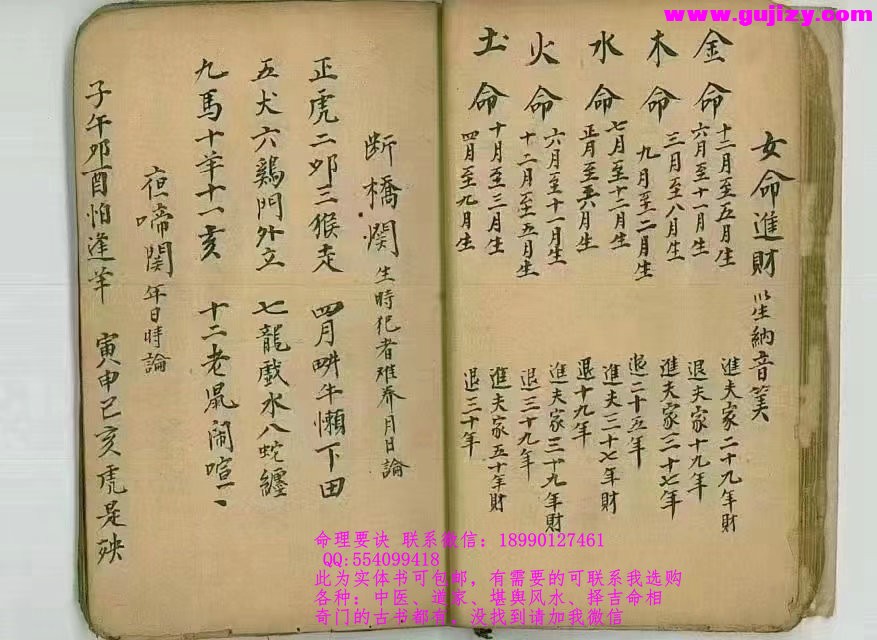 www.gujizy.com
女命進財 以生納音筭
金命 十二月至五月生 進夫家二十九年財
六月至十一月生 退夫家十九年
木命 三月至八月生 進夫家三十七年
九月至二月生 退二十五年
水命 七月至十二月生 進夫三十七年財
正月至六月生 退十九年
火命 六月至十一月生 進夫家三十九年財
十二月至五月生 退三十九年
土命 十月至三月生 進夫家五十年財
四月至九月生 退三十年
断橋関 生時犯者难养月日論
正虎二卯三猴走 四月畊牛懶下田
五犬六鷄門外立 七龍戲水八蛇纏
九馬十羊十一亥 十二老鼠閙喧喧
夜啼関 年日時論
子午卯酉怕逢羊 寅申巳亥虎是殃
命理要诀 联系微信：18990127461
QQ:554099418
此为实体书可包邮，有需要的可联系我选购
各种：中医、道家、堪舆风水、择吉命相
奇门的古书都有。没找到请加我微信